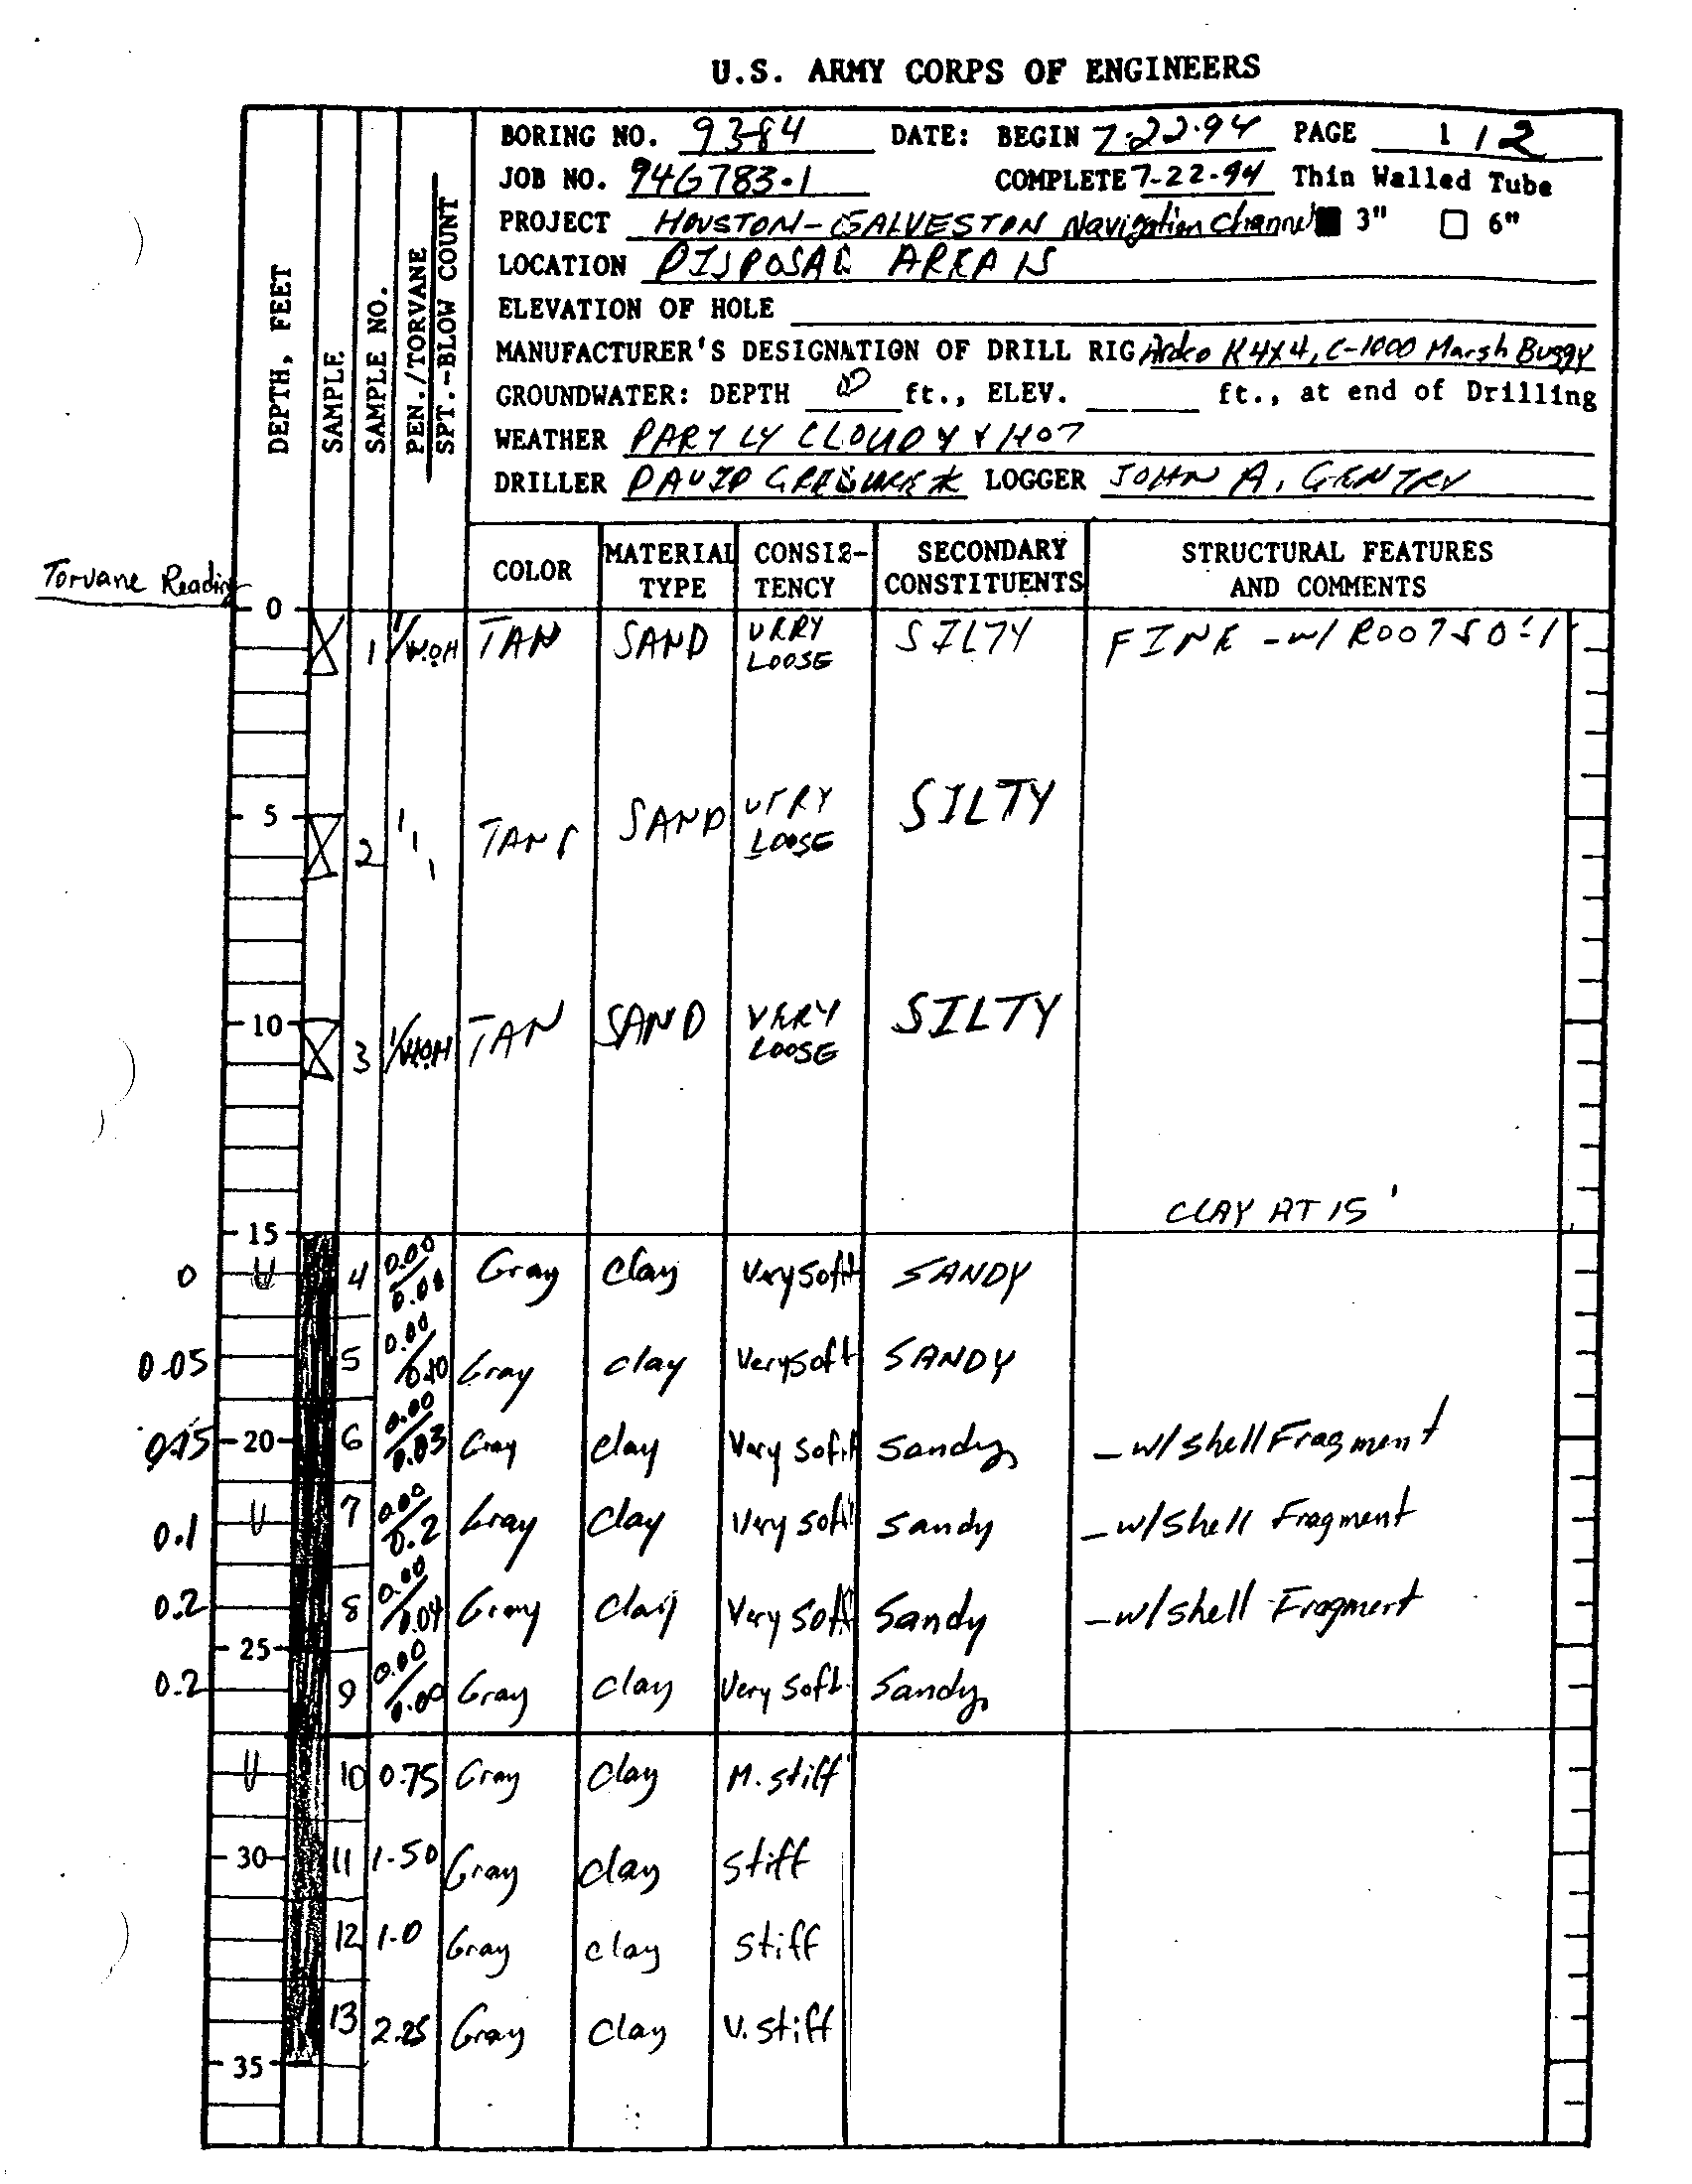 U.S. ARMY CORPS OF ENGINEERS
BORING NO. 93-84 DATE: BEGIN 7-22-94 PAGE 1 / 2
JOB NO. 94G783-1 COMPLETE 7-22-94 Thin Walled Tube
PROJECT HOUSTON-GALVESTON Navigation Channel 3" 6"
LOCATION DISPOSAL AREA
ELEVATION OF HOLE
MANUFACTURER'S DESIGNATION OF DRILL RIG Ardco K4X4, C-1000 Marsh Buggy
GROUNDWATER: DEPTH ft., ELEV. ft., at end of Drilling
WEATHER PARTLY CLOUDY & HOT
DRILLER DAVID LOGGER JOHN A. GENTRY
DEPTH, FEET
SAMPLE
SAMPLE NO.
PEN./TORVANE
SPT.-BLOW COUNT
COLOR MATERIAL TYPE CONSIS-TENCY SECONDARY CONSTITUENTS STRUCTURAL FEATURES AND COMMENTS
Torvane Reading
0
1 1/W.OH TAN SAND VERY LOOSE SILTY FINE -w/ ROOTS 0-1'
5
2 1/1/1 TAN SAND VERY LOOSE SILTY
10
3 1/W.OH TAN SAND VERY LOOSE SILTY
CLAY AT 15'
15
0 U 4 0.00/ Gray Clay Very Soft SANDY
0.05 5 0.00/0.10 Gray clay Very soft SANDY
20 6 0.00/0.03 Gray Clay Very Soft Sandy - w/ shell Fragment
0.1 U 7 0.00/0.2 Gray Clay Very Soft Sandy - w/ Shell Fragment
0.2 8 0.00/0.04 Gray Clay Very Soft Sandy - w/ shell Fragment
25
0.2 9 0.00/0.00 Gray Clay Very Soft Sandy
U 10 0.75 Gray Clay M. stiff
30 11 1.50 Gray Clay Stiff
12 1.0 Gray clay Stiff
13 2.25 Gray Clay V. stiff
35